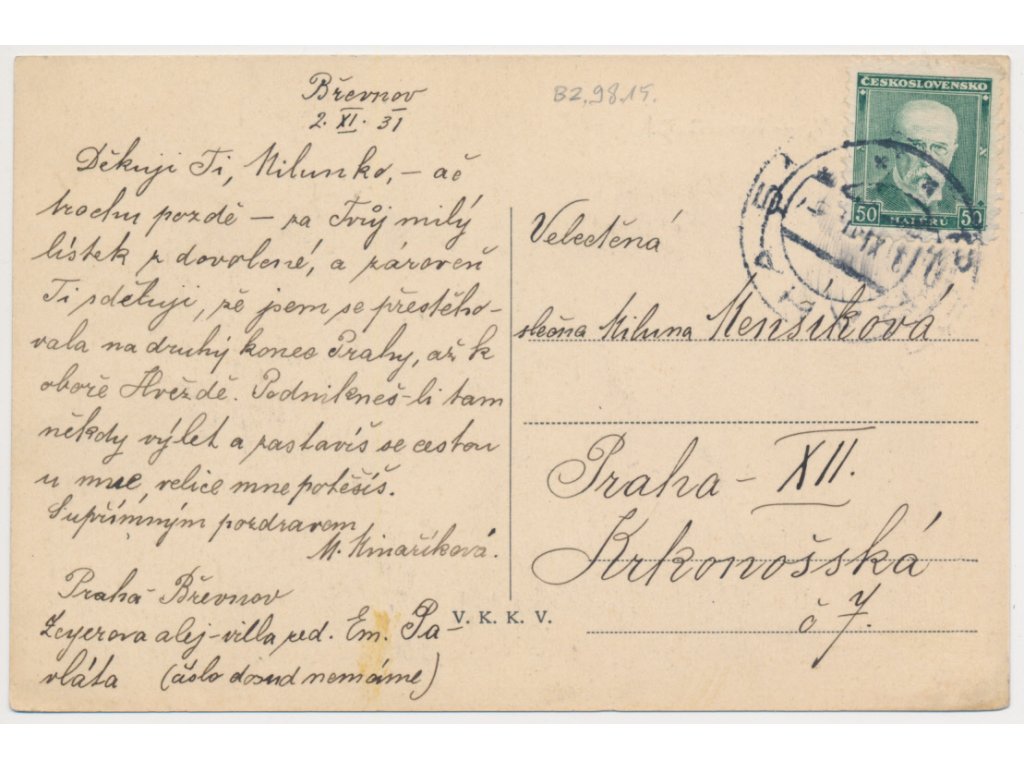 Břevnov
2. XI. 31
Děkuji Ti, Milunko, – ač
trochu pozdě – za Tvůj milý
lístek z dovolené, a zároveň
Ti sděluji, že jsem se přestěho-
vala na druhý konec Prahy, až k
oboře Hvězdě. Podnikneš-li tam
někdy výlet a zastavíš se cestou
u mne velice mne potěšíš.
S upřímným pozdravem
M. Minaříková.
Praha-Břevnov
Zeyerova alej-villa red. Em. Pa-
vláta (číslo dosud nemáme)
V. K. K. V.
BZ,98.15.
ČESKOSLOVENSKO
50 HALÉŘŮ 50
Velectěná
slečna Miluna Menšíková
Praha – XII.
Krkonošská
č 7.